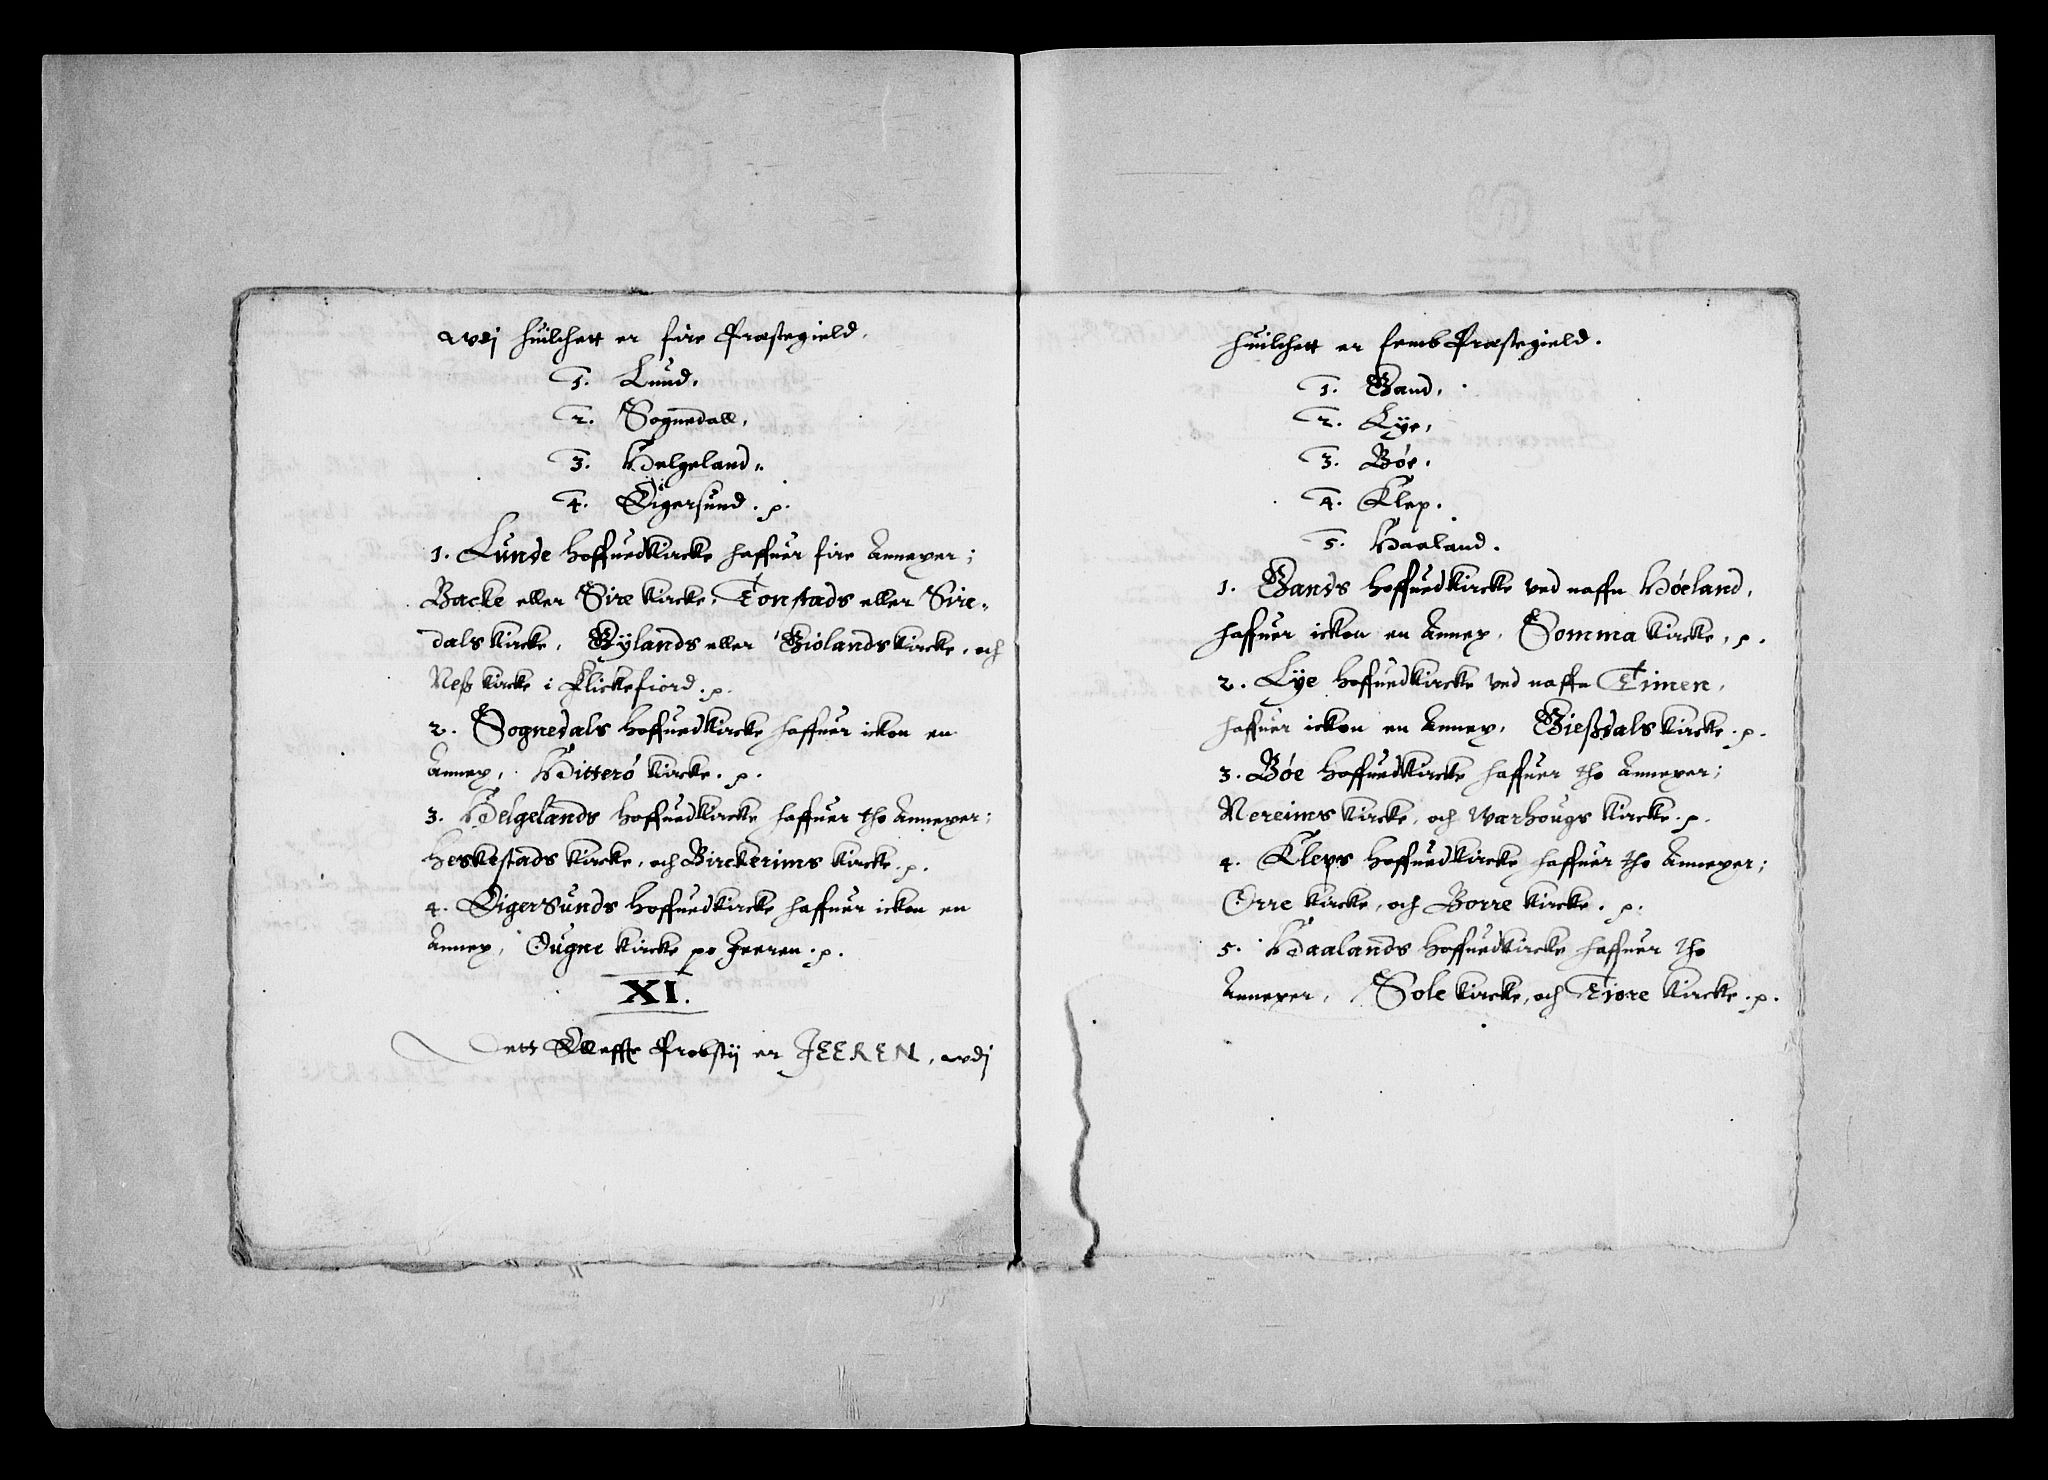 wdj huilchett er fire Præstegield.
1. Lund.
2. Sognedall.
3. Helgeland.
4. Öigersund. p.
1. Lunde hoffuedkircke haffuer fire Annexer;
Backe eller Sire kircke, Tonstads eller Sire-
dals kircke, Gÿlands eller Giölands kircke, och
Neß kircke i Flickefiord. p.
2. Sognedals hoffuedkircke haffuer ickon en
Annex, Hitterö kircke. p.
3. Helgelands hoffuedkircke haffuer tho Annexer;
Heskestads kircke, och Birckerims kircke. p.
4. Öigersunds hoffuedkircke haffuer ickon en
Annex, Ougne kircke po Jeeren. p.
XI.
Dett Elleffte Probstij er JEEREN, wdj
huilchett er femb Præstegield.
1. Gand.
2. Lÿe.
3. Bóe.
4. Klep.
5. Haaland.
1. Gands hoffuedkircke ved naffn Hóeland,
haffuer ickon en Annex, Somma kircke, p.
2. Lÿe hoffuedkircke ved naffn Timen,
haffuer ickon en Annex, Gießdals kircke. p.
3. Bóe hoffuedkircke haffuer tho Annexer;
Nereims kircke, och Warhougs kircke. p.
4. Kleps hoffuedkircke haffuer tho Annexer;
Orre kircke, och Borre kircke. p.
5. Haalands hoffuedkircke haffuer tho
Annexer, Sole kircke, och Tiore kircke. p.